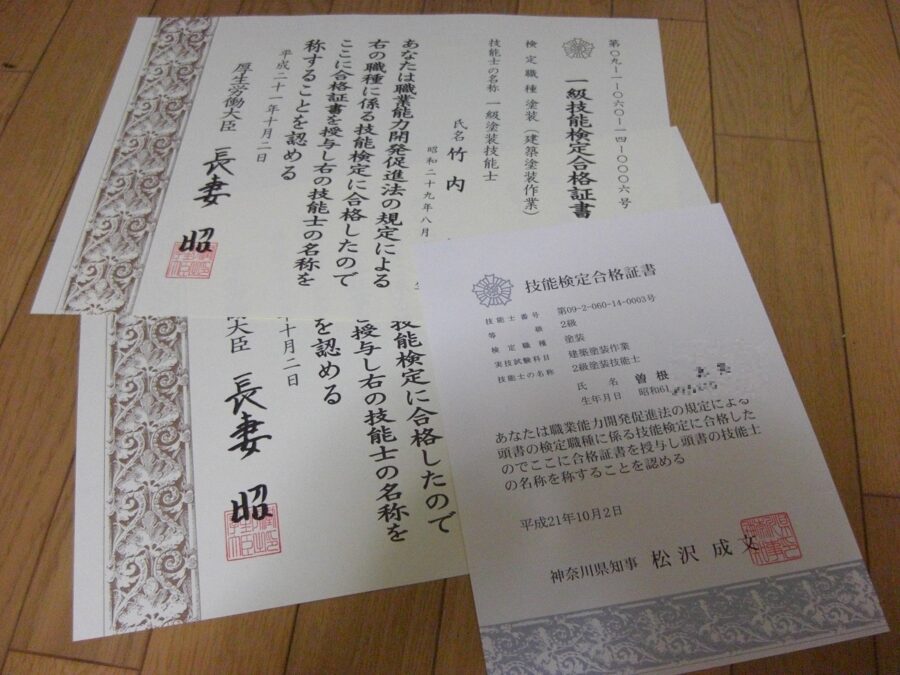 第〇九-一-〇六〇-一四-〇〇〇六号
一級技能検定合格証書
検定職種 塗装(建築塗装作業)
技能士の名称 一級塗装技能士
氏名 竹内
昭和二十九年八月
あなたは職業能力開発促進法の規定による
右の職種に係る技能検定に合格したので
ここに合格証書を授与し右の技能士の名称を
称することを認める
平成二十一年十月二日
厚生労働大臣 長妻 昭
技能検定に合格したので
授与し右の技能士の名称を
を認める
十月二日
大臣 長妻 昭
技能検定合格証書
技能士番号 第09-2-060-14-0003号
等級 2級
検定職種 塗装
実技試験科目 建築塗装作業
技能士の名称 2級塗装技能士
氏名 曽根
生年月日 昭和61
あなたは職業能力開発促進法の規定による
頭書の検定職種に係る技能検定に合格した
のでここに合格証書を授与し頭書の技能士
の名称を称することを認める
平成21年10月2日
神奈川県知事 松沢成文